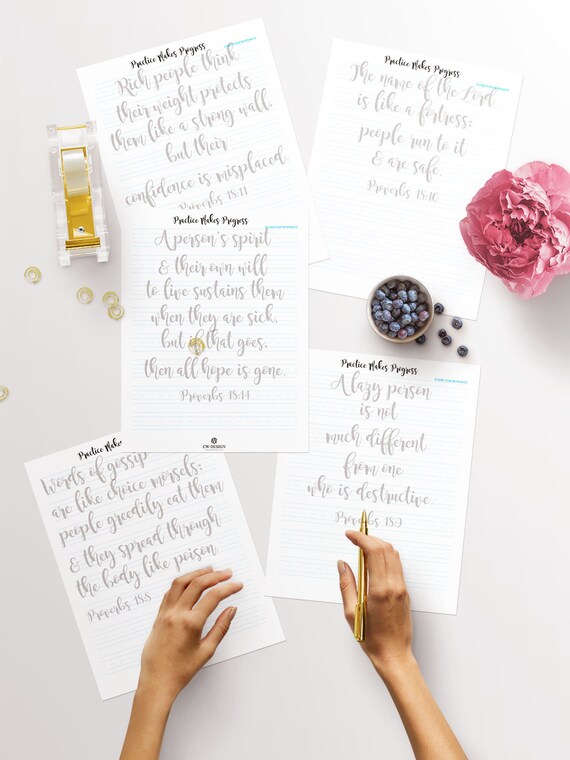 Practice Makes Progress
Rich people think
their weight protects
them like a strong wall,
but their
confidence is misplaced.
Proverbs 18:11
Practice Makes Progress
The name of the Lord
is like a fortress:
people run to it
& are safe.
Proverbs 18:10
Practice Makes Progress
A person's spirit
& their own will
to live sustains them
when they are sick,
but if that goes,
then all hope is gone.
Proverbs 18:14
CW DESIGN
Practice Makes Progress
A lazy person
is not
much different
from one
who is destructive.
Proverbs 18:9
Practice Make
Words of gossip
are like choice morsels:
people greedily eat them
& they spread through
the body like poison
Proverbs 18:8